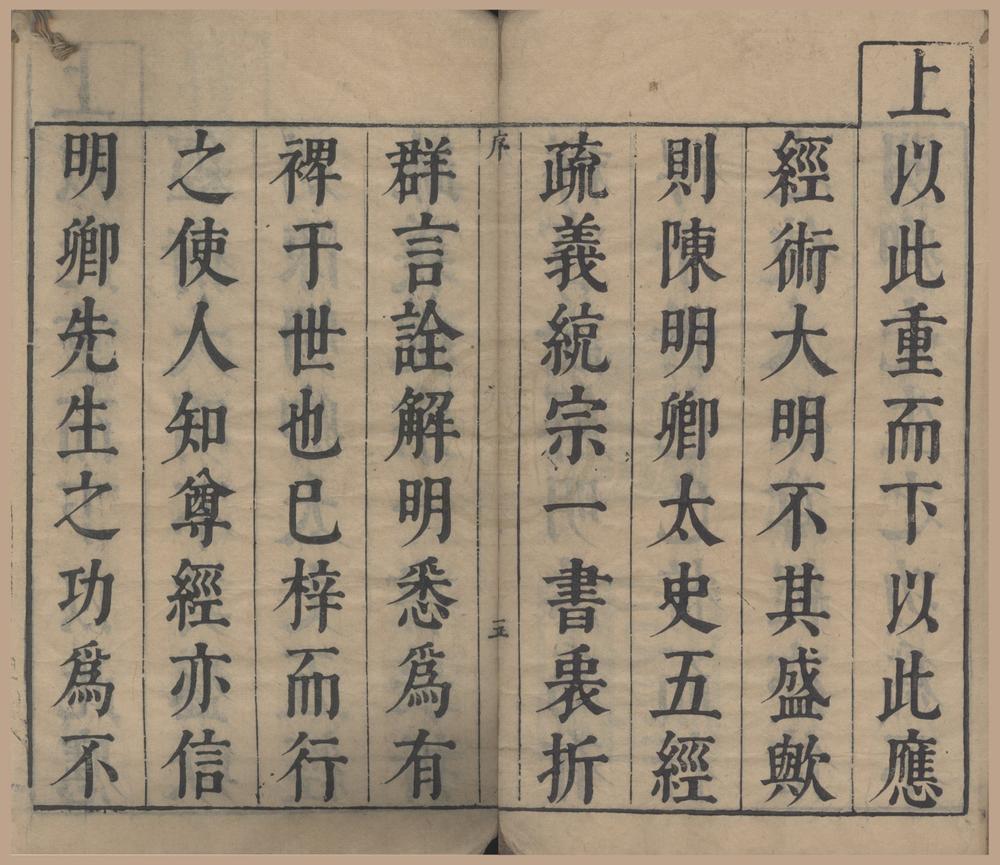 上以此重而下以此應
經術大明不其盛歟
則陳明卿太史五經
疏義統宗一書裒折
序 五
群言詮解明悉爲有
裨于世也已梓而行
之使人知尊經亦信
明卿先生之功爲不